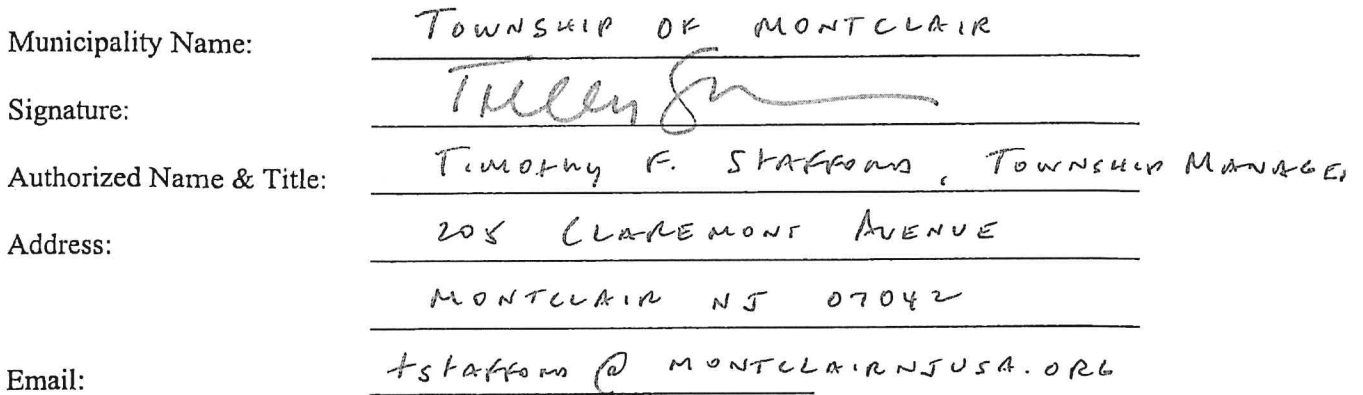 Municipality Name: TOWNSHIP OF MONTCLAIR
Signature:
Authorized Name & Title: TIMOTHY F. STAFFORD, TOWNSHIP MANAGER
Address: 205 CLAREMONT AVENUE
MONTCLAIR NJ 07042
Email: tstafford@MONTCLAIRNJUSA.ORG